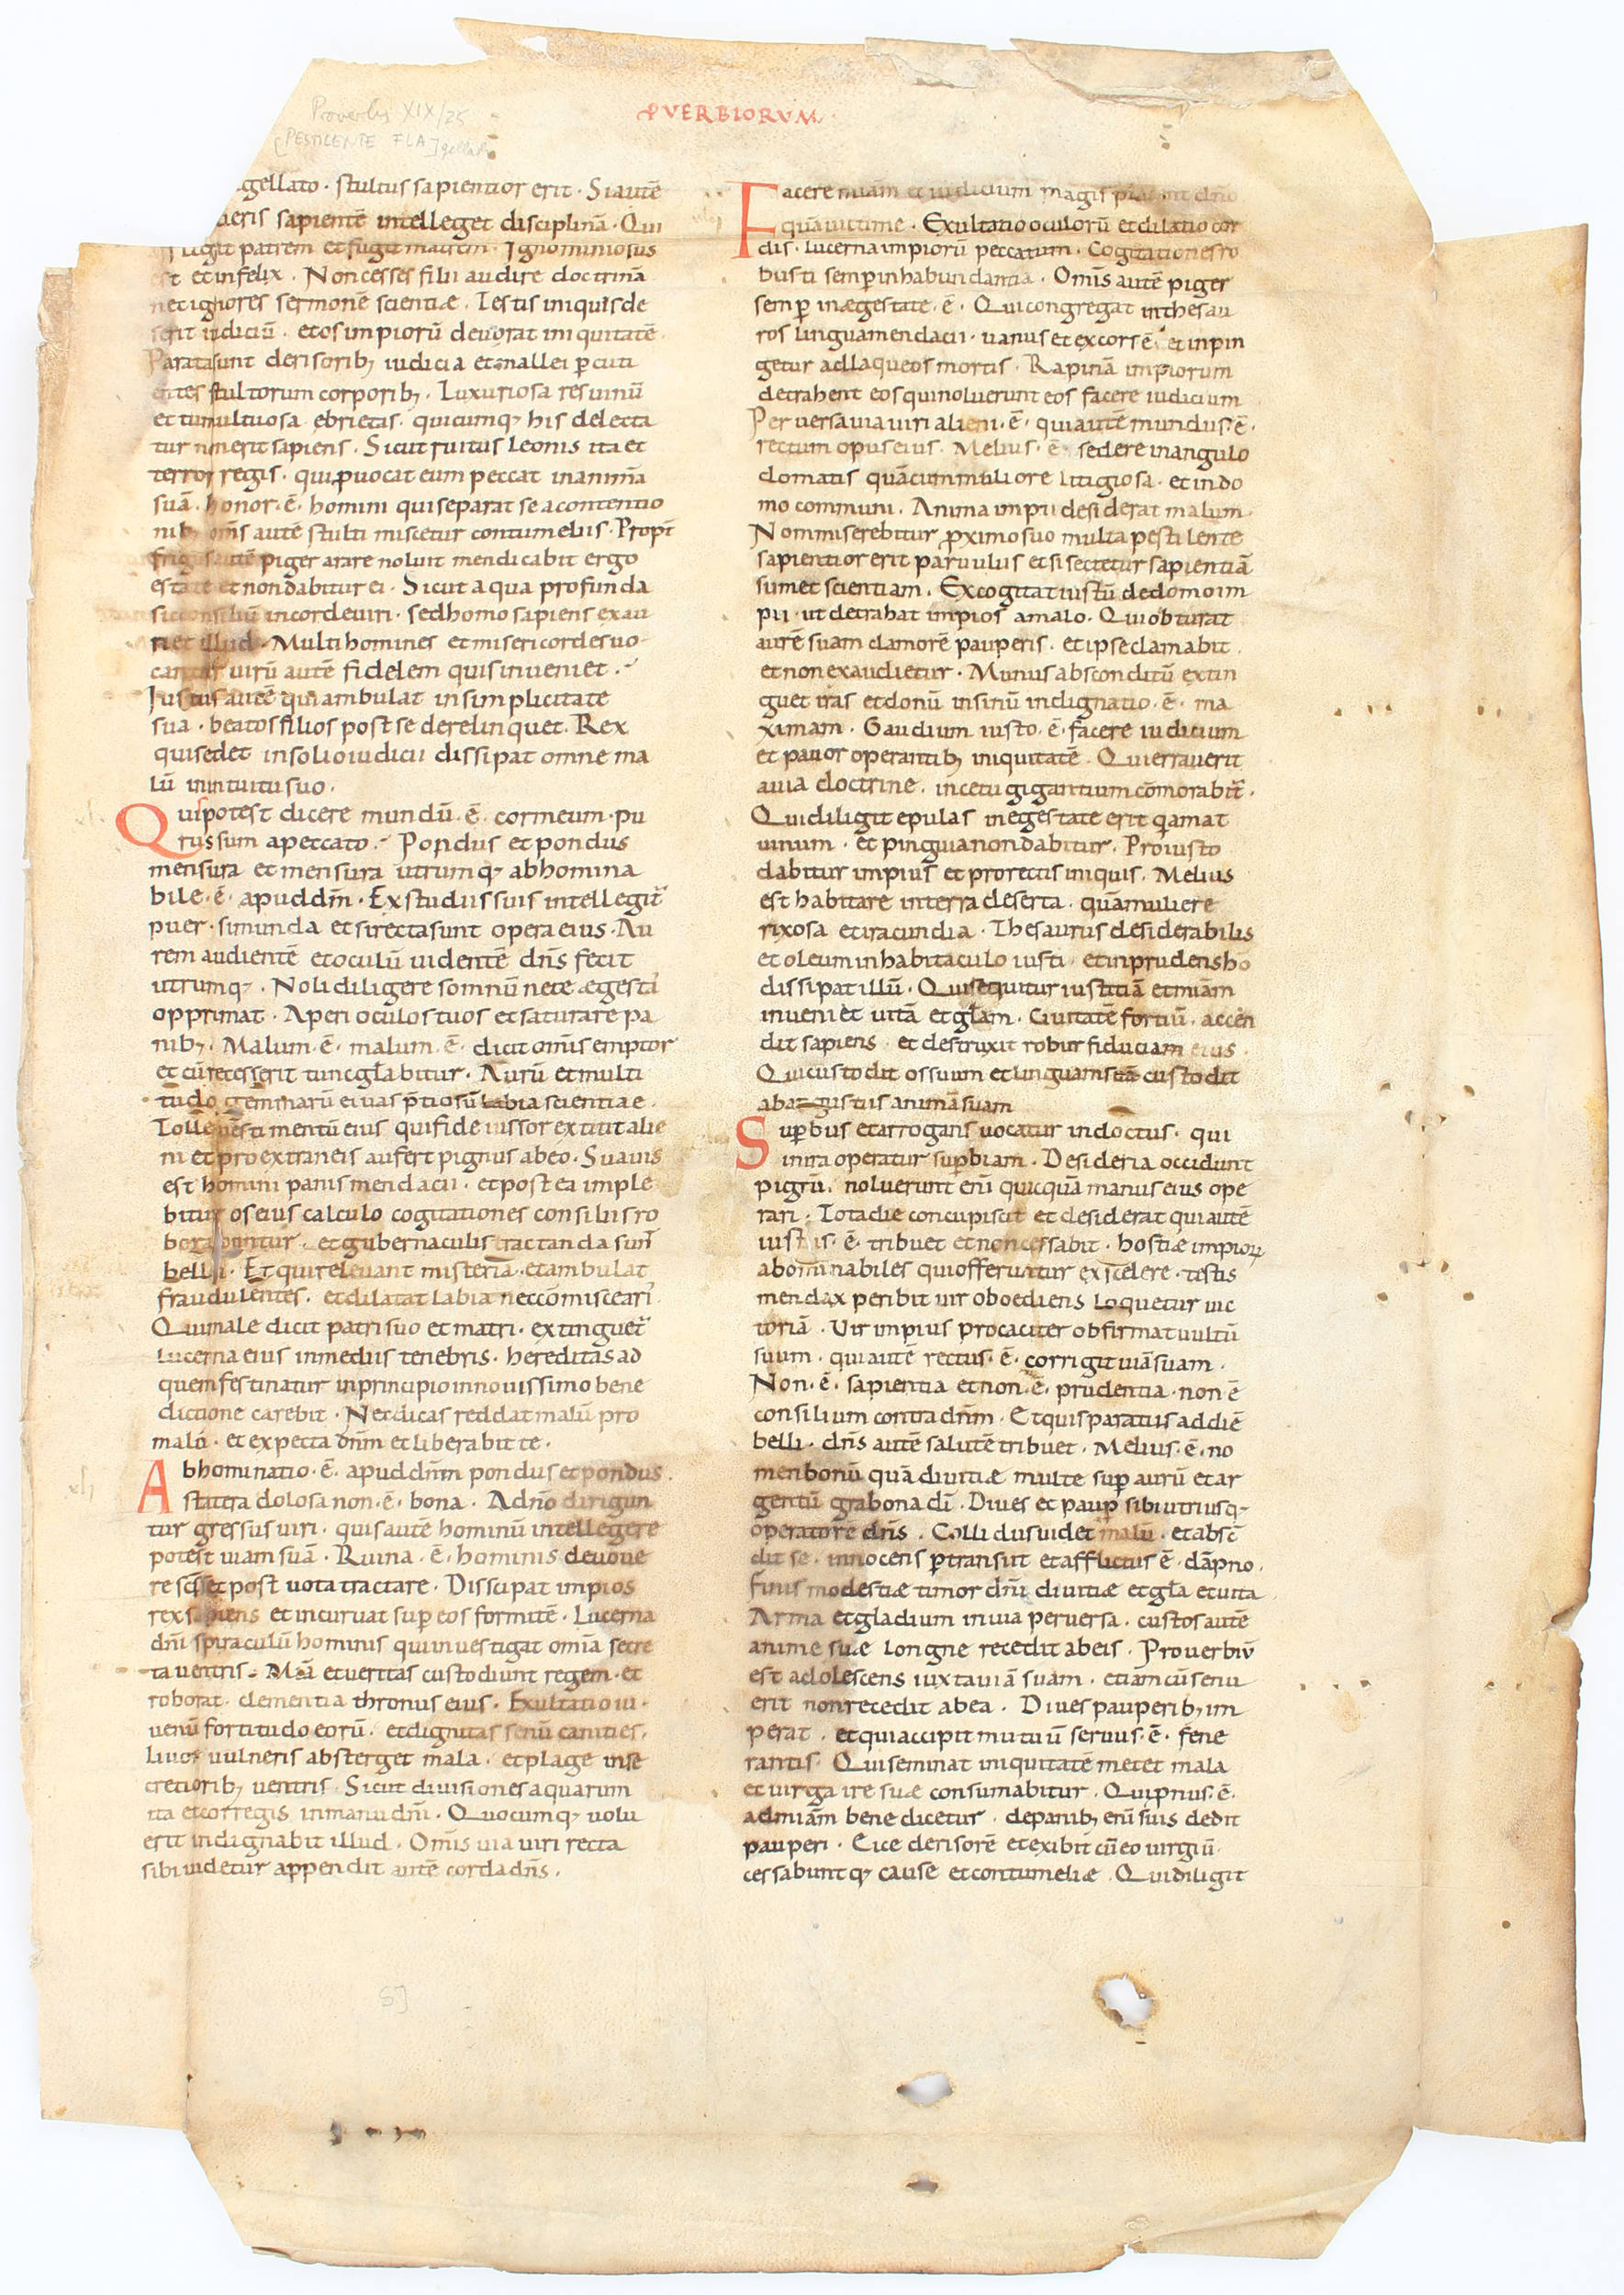 Proverbis XIX/25
[PESTILENTE FLA]gellato
PVERBIORVM
gellato · stultus sapientior erit · Si autē
ueris sapientē intelleget disciplinā · Qui
fligit patrem et fugit matrem · Ignominiosus
est et infelix · Non cesses fili audire doctrinā
nec ignores sermonē scientiæ · Testis iniquus de
serit iudiciū · et os impiorū deuorat iniquitatē ·
Parata sunt derisorib; iudicia et mallei p cuti
entes stultorum corporib; · Luxuriosa res uinū
et tumultuosa ebrietas · quicumq; his delecta
tur non erit sapiens · Sicut rugitus leonis ita et
terror regis · qui puocat eum peccat in animā
suā · honor · ē · homini qui separat se a contentio
nib; om̄s autē stulti miscetur contumeliis · Propt̄
frigus autē piger arare noluit mendicabit ergo
estate et non dabitur ei · Sicut aqua profunda
sic consiliū in corde uiri · sed homo sapiens exau
riet illud · Multi homines et misericordes uo
cantur uirū autē fidelem quis inueniet ·
Iustus autē qui ambulat in simplicitate
sua · beatos filios post se derelinquet · Rex
qui sedet in solio iudicii dissipat omne ma
lū in intuitu suo ·
Quis potest dicere mundū · ē · cor meum · pu
rus sum a peccato · Pondus et pondus
mensura et mensura utrumq; abhomina
bile · ē · apud dm̄ · Ex studiis suis intellegit̄
puer · si munda et si recta sunt opera eius · Au
rem audientē et oculū uidentē dn̄s fecit
utrumq; · Noli diligere somnū ne te ægesta
opprimat · Aperi oculos tuos et saturare pa
nib; · Malum · ē · malum · ē · dicit om̄is emptor
et cū recesserit tunc gl̄abitur · Aurū et multi
tudo gemmarū et uas p̄tiosū labia scientiae ·
Tolle uestimentū eius qui fideiussor extitit alie
ni et pro extraneis aufert pignus ab eo · Suauis
est homini panis mendacii · et postea imple
bitur os eius calculo cogitationes consiliis ro
borabuntur · et gubernaculis tractanda sun̄
bella · Et qui releuant misteria · et ambulat
fraudulentes · et dilatat labia ne commiscearis
Qui male dicit patri suo et matri · extinguet̄
lucerna eius in mediis tenebris · hereditas ad
quem festinatur in principio in nouissimo bene
dictione carebit · Ne dicas reddat malū pro
malo · et expecta dn̄m et liberabit te ·
Abhominatio · ē · apud dn̄m pondus et pondus ·
statera dolosa non · ē · bona · A dn̄o dirigun
tur gressus uiri · quis autē hominū intellegere
potest uiam suā · Ruina · ē · hominis deuoue
re sc̄s et post uota tractare · Dissipat impios
rex sapiens et incuruat sup eos fornicē · Lucerna
dn̄i spiraculū hominis qui inuestigat om̄ia secre
ta uentris · Miā et ueritas custodiunt regem · et
roborat · clementia thronus eius · Exultatio iu ·
uenū fortitudo eorū · et dignitas senū canities ·
Liuor uulneris absterget mala · et plage in se
cretiorib; uentris · Sicut diuisiones aquarum
ita et cor regis in manu dn̄i · Quocumq; uolu
erit indignabit illud · Om̄is uia uiri recta
sibi uidetur appendit autē corda dn̄s ·
Facere miām et iudicium magis placent dn̄o
quā uictime · Exultatio oculorū et dilatio cor
dis · lucerna impiorū peccatum · Cogitationes ro
busti semp in habundantia · Om̄is autē piger
semp in ægestate · ē · Qui congregat in thesau
ros lingua mendacii · uanus et excors ē · et inpin
getur ad laqueos mortis · Rapinā impiorum
detrahent eos qui noluerunt eos facere iudicium
Per uersa uia uiri alieni · ē · qui autē mundus · ē ·
rectum opus eius · Melius · ē · sedere in angulo
domatis quā cum muliore litigiosa · et in do
mo communi · Anima impii desiderat malum
Non miserebitur p̱ximo suo multa pestilente
sapientior erit paruulus et si sectetur sapientiā
sumet scientiam · Excogitat iustū de domo im
pii · ut detrahat impios a malo · Qui obturat
aurē suam clamorē pauperis · et ipse clamabit ·
et non exaudietur · Munus absconditū extin
guet iras et donū in sinū indignatio · ē · ma
ximam · Gaudium iusto · ē · facere iudicium
et pauor operantib; iniquitatē · Qui errauerit
a uia doctrine · in cetu gigantium commorabit̄ ·
Qui diligit epulas in egestate erit q amat
uinum · et pinguia non dabitur · Pro iusto
dabitur impius et pro rectis iniquis · Melius
est habitare in terra deserta · quā muliere
rixosa et iracundia · Thesaurus desiderabilis
et oleum in habitaculo iusti · et inprudens ho
dissipat illū · Qui sequitur iustitiā et miām
inueniet uitā et gl̄am · Ciuitatē fortiū · accen
dit sapiens · et destruxit robur fiduciam eius ·
Qui custodit os suum et linguam suā custodit
ab angustiis animā suam
Supbus et arrogans uocatur indoctus · qui
in ira operatur supbiam · Desideria occidunt
pigrū · noluerunt eni quicquā manus eius ope
rari · Tota die concupiscit et desiderat qui autē
iustus · ē · tribuet et non cessabit · hostiæ impiorꝝ
abominabiles qui offeruntur ex scelere · testis
mendax peribit uir oboediens loquetur uic
toriā · Uir impius procaciter obfirmat uultū
suum · qui autē rectus · ē · corrigit uiā suam ·
Non · ē · sapientia et non · ē · prudentia · non ē
consilium contra dn̄m · Et quis paratus ad diē
belli · dn̄s autē salutē tribuet · Melius · ē · no
men bonū quā diuitiæ multe sup aurū et ar
gentū gra bona di · Diues et paup sibi utriusq;
operatore dn̄s · Callidus uidet malū · et absc̄
dit se · innocens ptransiit et afflictus ē · dāpno ·
Finis modestiæ timor dn̄i diuitiæ et gl̄a et uita ·
Arma et gladium in uia peruersa · custos autē
anime suæ longne recedit ab eis · Prouerbiū
est adolescens iuxta uiā suam · etiam cū senu
erit non recedit ab ea · Diues pauperib; im
perat · et qui accipit mutuū seruus · ē · fene
rantis · Qui seminat iniquitatē metet mala
et uirga ire suæ consumabitur · Qui pnus · ē ·
ad miām bene dicetur · de panib; eni suis dedit
pauperi · Eice derisorē et exibit cū eo iurgiū ·
cessabuntq; cause et contumeliæ · Qui diligit